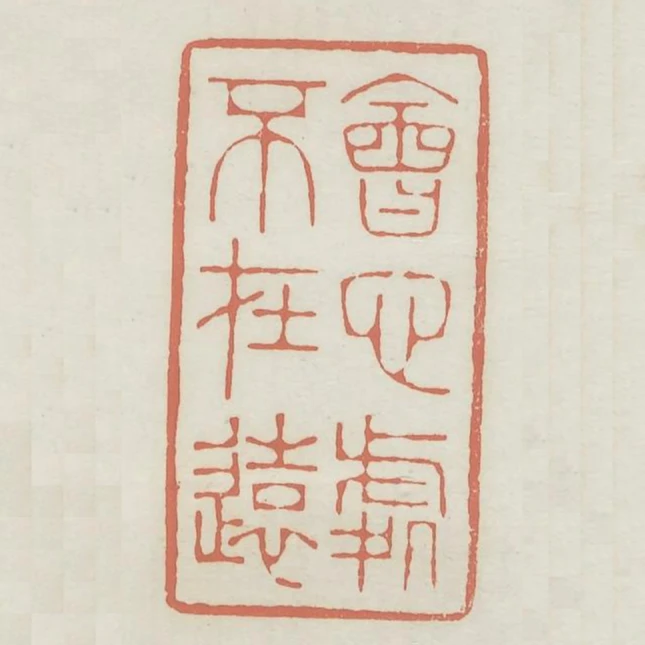 會心處
不在遠